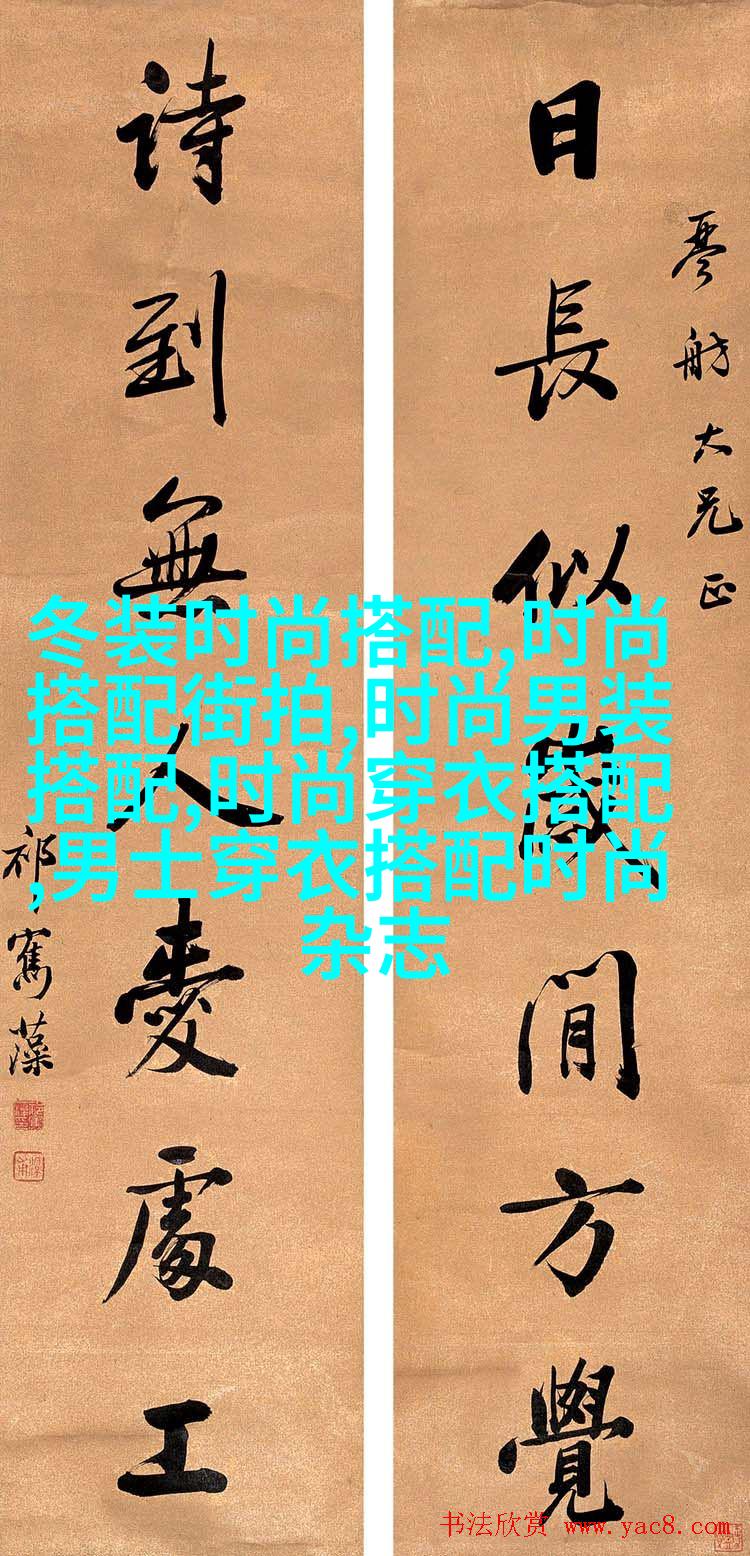 日長似歲閒方覺
琴舫大兄正
詩到無人愛處工
祁寯藻
冬装时尚搭配,时尚
搭配街拍,时尚男装
搭配,时尚穿衣搭配
,男士穿衣搭配时尚
杂志
书法欣赏 www.yac8.com